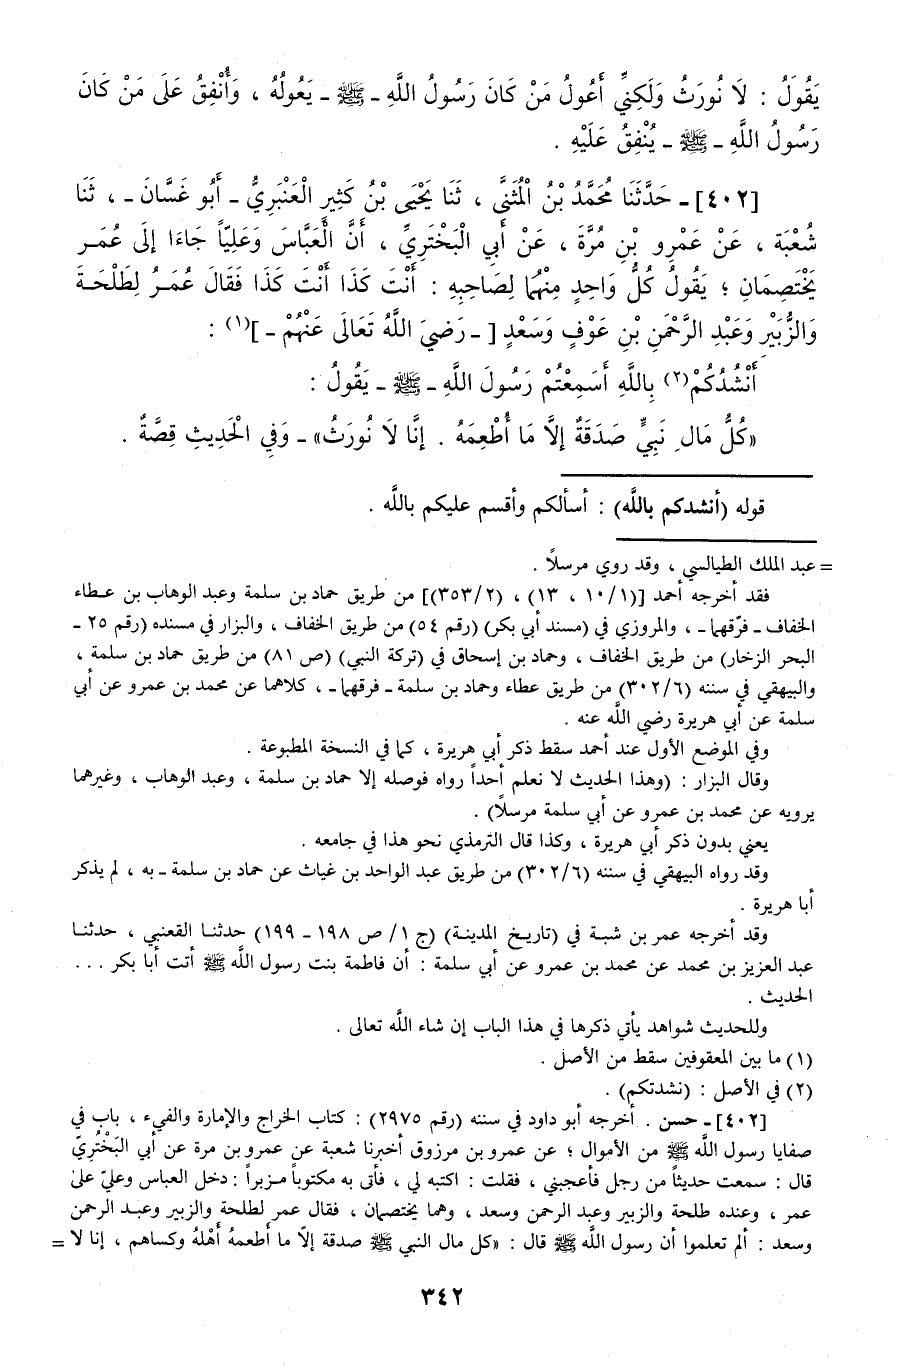 يَقُولَُ : لَا نُورَثُ وَلَكِنِّي أَعُولُ مَنْ كَانَ رَسُولُ اللَّهِ ـ ﷺ ـ يَعُولُهُ ، وَأُنْفِقُ عَلَى مَنْ كَانَ
رَسُولُ اللَّهِ ـ ﷺ ـ يُنْفِقُ عَلَيْهِ .
[٤٠٢] ـ حَدَّثَنَا مُحَمَّدُ بْنُ الْمُثَنَّى ، ثَنَا يَحْيَى بْنُ كَثِيرٍ الْعَنْبَرِيُّ ـ أَبُو غَسَّانَ ـ ، ثَنَا
شُعْبَة ، عَنْ عَمْرِو بْنِ مُرَّةَ ، عَنْ أَبِي الْبَخْتَرِيِّ ، أَنَّ الْعَبَّاسَ وَعَلِيّاً جَاءَا إِلَى عُمَرَ
يَخْتَصِمَانِ ؛ يَقُولُ كُلُّ وَاحِدٍ مِنْهُمَا لِصَاحِبِهِ : أَنْتَ كَذَا أَنْتَ كَذَا فَقَالَ عُمَرُ لِطَلْحَةَ
وَالزُّبَيْرِ وَعَبْدِ الرَّحْمَنِ بْنِ عَوْفٍ وَسَعْدٍ [ ـ رَضِيَ اللَّهُ تَعَالَى عَنْهُمْ ـ ](١) :
أَنْشُدُكُمْ(٢) بِاللَّهِ أَسَمِعْتُمْ رَسُولَ اللَّهِ ـ ﷺ ـ يَقُولُ :
«كُلُّ مَالِ نَبِيٍّ صَدَقَةٌ إِلَّا مَا أُطْعِمَهُ . إِنَّا لَا نُورَثُ» ـ وَفِي الْحَدِيثِ قِصَّةٌ .
قوله (أنشدكم باللَّه) : أسألكم وأقسم عليكم باللَّه .
= عبد الملك الطيالسي ، وقد روي مرسلاً .
فقد أخرجه أحمد [(١/ ١٠ ، ١٣) ، (٢/ ٣٥٣)] من طريق حماد بن سلمة وعبد الوهاب بن عطاء
الخفاف ـ فرّقهما ـ ، والمروزي في (مسند أبي بكر) (رقم ٥٤) من طريق الخفاف ، والبزار في مسنده (رقم ٢٥ ـ
البحر الزخار) من طريق الخفاف ، وحماد بن إسحاق في (تركة النبي) (ص ٨١) من طريق حماد بن سلمة ،
والبيهقي في سننه (٦/ ٣٠٢) من طريق عطاء وحماد بن سلمة ـ فرقهما ـ ، كلاهما عن محمد بن عمرو عن أبي
سلمة عن أبي هريرة رضي اللَّه عنه .
وفي الموضع الأول عند أحمد سقط ذكر أبي هريرة ، كما في النسخة المطبوعة .
وقال البزار : (وهذا الحديث لا نعلم أحداً رواه فوصله إلا حماد بن سلمة ، وعبد الوهاب ، وغيرهما
يرويه عن محمد بن عمرو عن أبي سلمة مرسلاً) .
يعني بدون ذكر أبي هريرة ، وكذا قال الترمذي نحو هذا في جامعه .
وقد رواه البيهقي في سننه (٦/ ٣٠٢) من طريق عبد الواحد بن غياث عن حماد بن سلمة ـ به ، لم يذكر
أبا هريرة .
وقد أخرجه عمر بن شبة في (تاريخ المدينة) (ج ١/ ص ١٩٨ ـ ١٩٩) حدثنا القعنبي ، حدثنا
عبد العزيز بن محمد عن محمد بن عمرو عن أبي سلمة : أن فاطمة بنت رسول اللَّه ﷺ أتت أبا بكر ...
الحديث .
وللحديث شواهد يأتي ذكرها في هذا الباب إن شاء اللَّه تعالى .
(١) ما بين المعقوفين سقط من الأصل .
(٢) في الأصل : (نشدتكم) .
[٤٠٢] ـ حسن . أخرجه أبو داود في سننه (رقم ٢٩٧٥) : كتاب الخراج والإمارة والفيء ، باب في
صفايا رسول اللَّه ﷺ من الأموال ؛ عن عمرو بن مرزوق أخبرنا شعبة عن عمرو بن مرة عن أبي البَخْتَرِيّ
قال : سمعت حديثاً من رجل فأعجبني ، فقلت : اكتبه لي ، فأتى به مكتوباً مزبراً : دخل العباس وعليّ على
عمر ، وعنده طلحة والزبير وعبد الرحمن وسعد ، وهما يختصمان ، فقال عمر لطلحة والزبير وعبد الرحمن
وسعد : ألم تعلموا أن رسول اللَّه ﷺ قال : «كل مال النبي ﷺ صدقة إلاّ ما أطعمهُ أهْلهُ وكساهم ، إنا لا =
٣٤٢